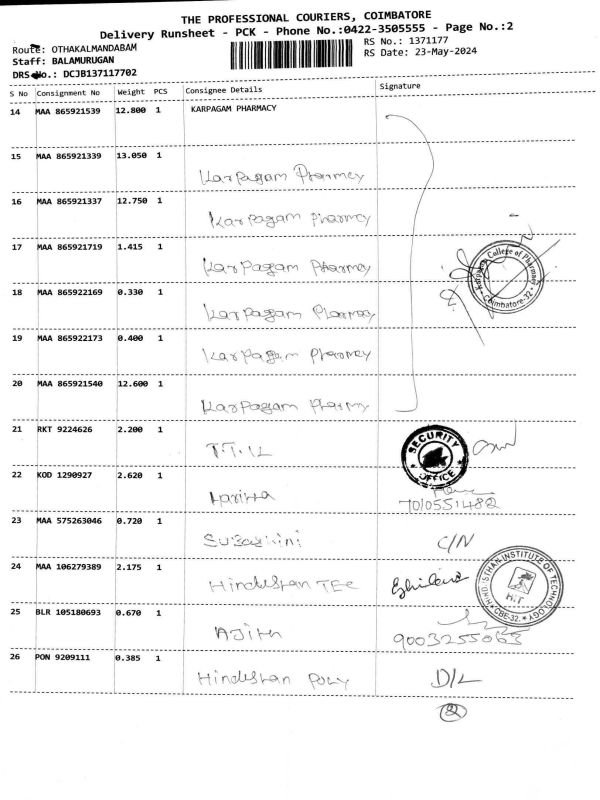 THE PROFESSIONAL COURIERS, COIMBATORE
Delivery Runsheet - PCK - Phone No.:0422-3505555 - Page No.:2
Route: OTHAKALMANDABAM
RS No.: 1371177
Staff: BALAMURUGAN
RS Date: 23-May-2024
DRS No.: DCJB137117702
S No Consignment No Weight PCS Consignee Details Signature
14 MAA 865921539 12.800 1 KARPAGAM PHARMACY
15 MAA 865921339 13.050 1 Karpagam Pharmcy
16 MAA 865921337 12.750 1 Karpagam Pharmcy
17 MAA 865921719 1.415 1 Karpagam Pharmcy
Karpagam College of Pharmacy
Coimbatore-32
18 MAA 865922169 0.330 1 Karpagam Pharmcy
19 MAA 865922173 0.400 1 Karpagam Pharmcy
20 MAA 865921540 12.600 1 Karpagam Pharmy
21 RKT 9224626 2.200 1 T.T.IL
SECURITY OFFICE
22 KOD 1290927 2.620 1 Haritta
23 MAA 575263046 0.720 1 C/N
24 MAA 106279389 2.175 1 Hindustan TEC
HINDUSTHAN INSTITUTE OF TECHNOLOGY
HIT
CBE-32.
25 BLR 105180693 0.670 1 Ajith 9003255063
26 PON 9209111 0.385 1 Hindustan Poly D/L